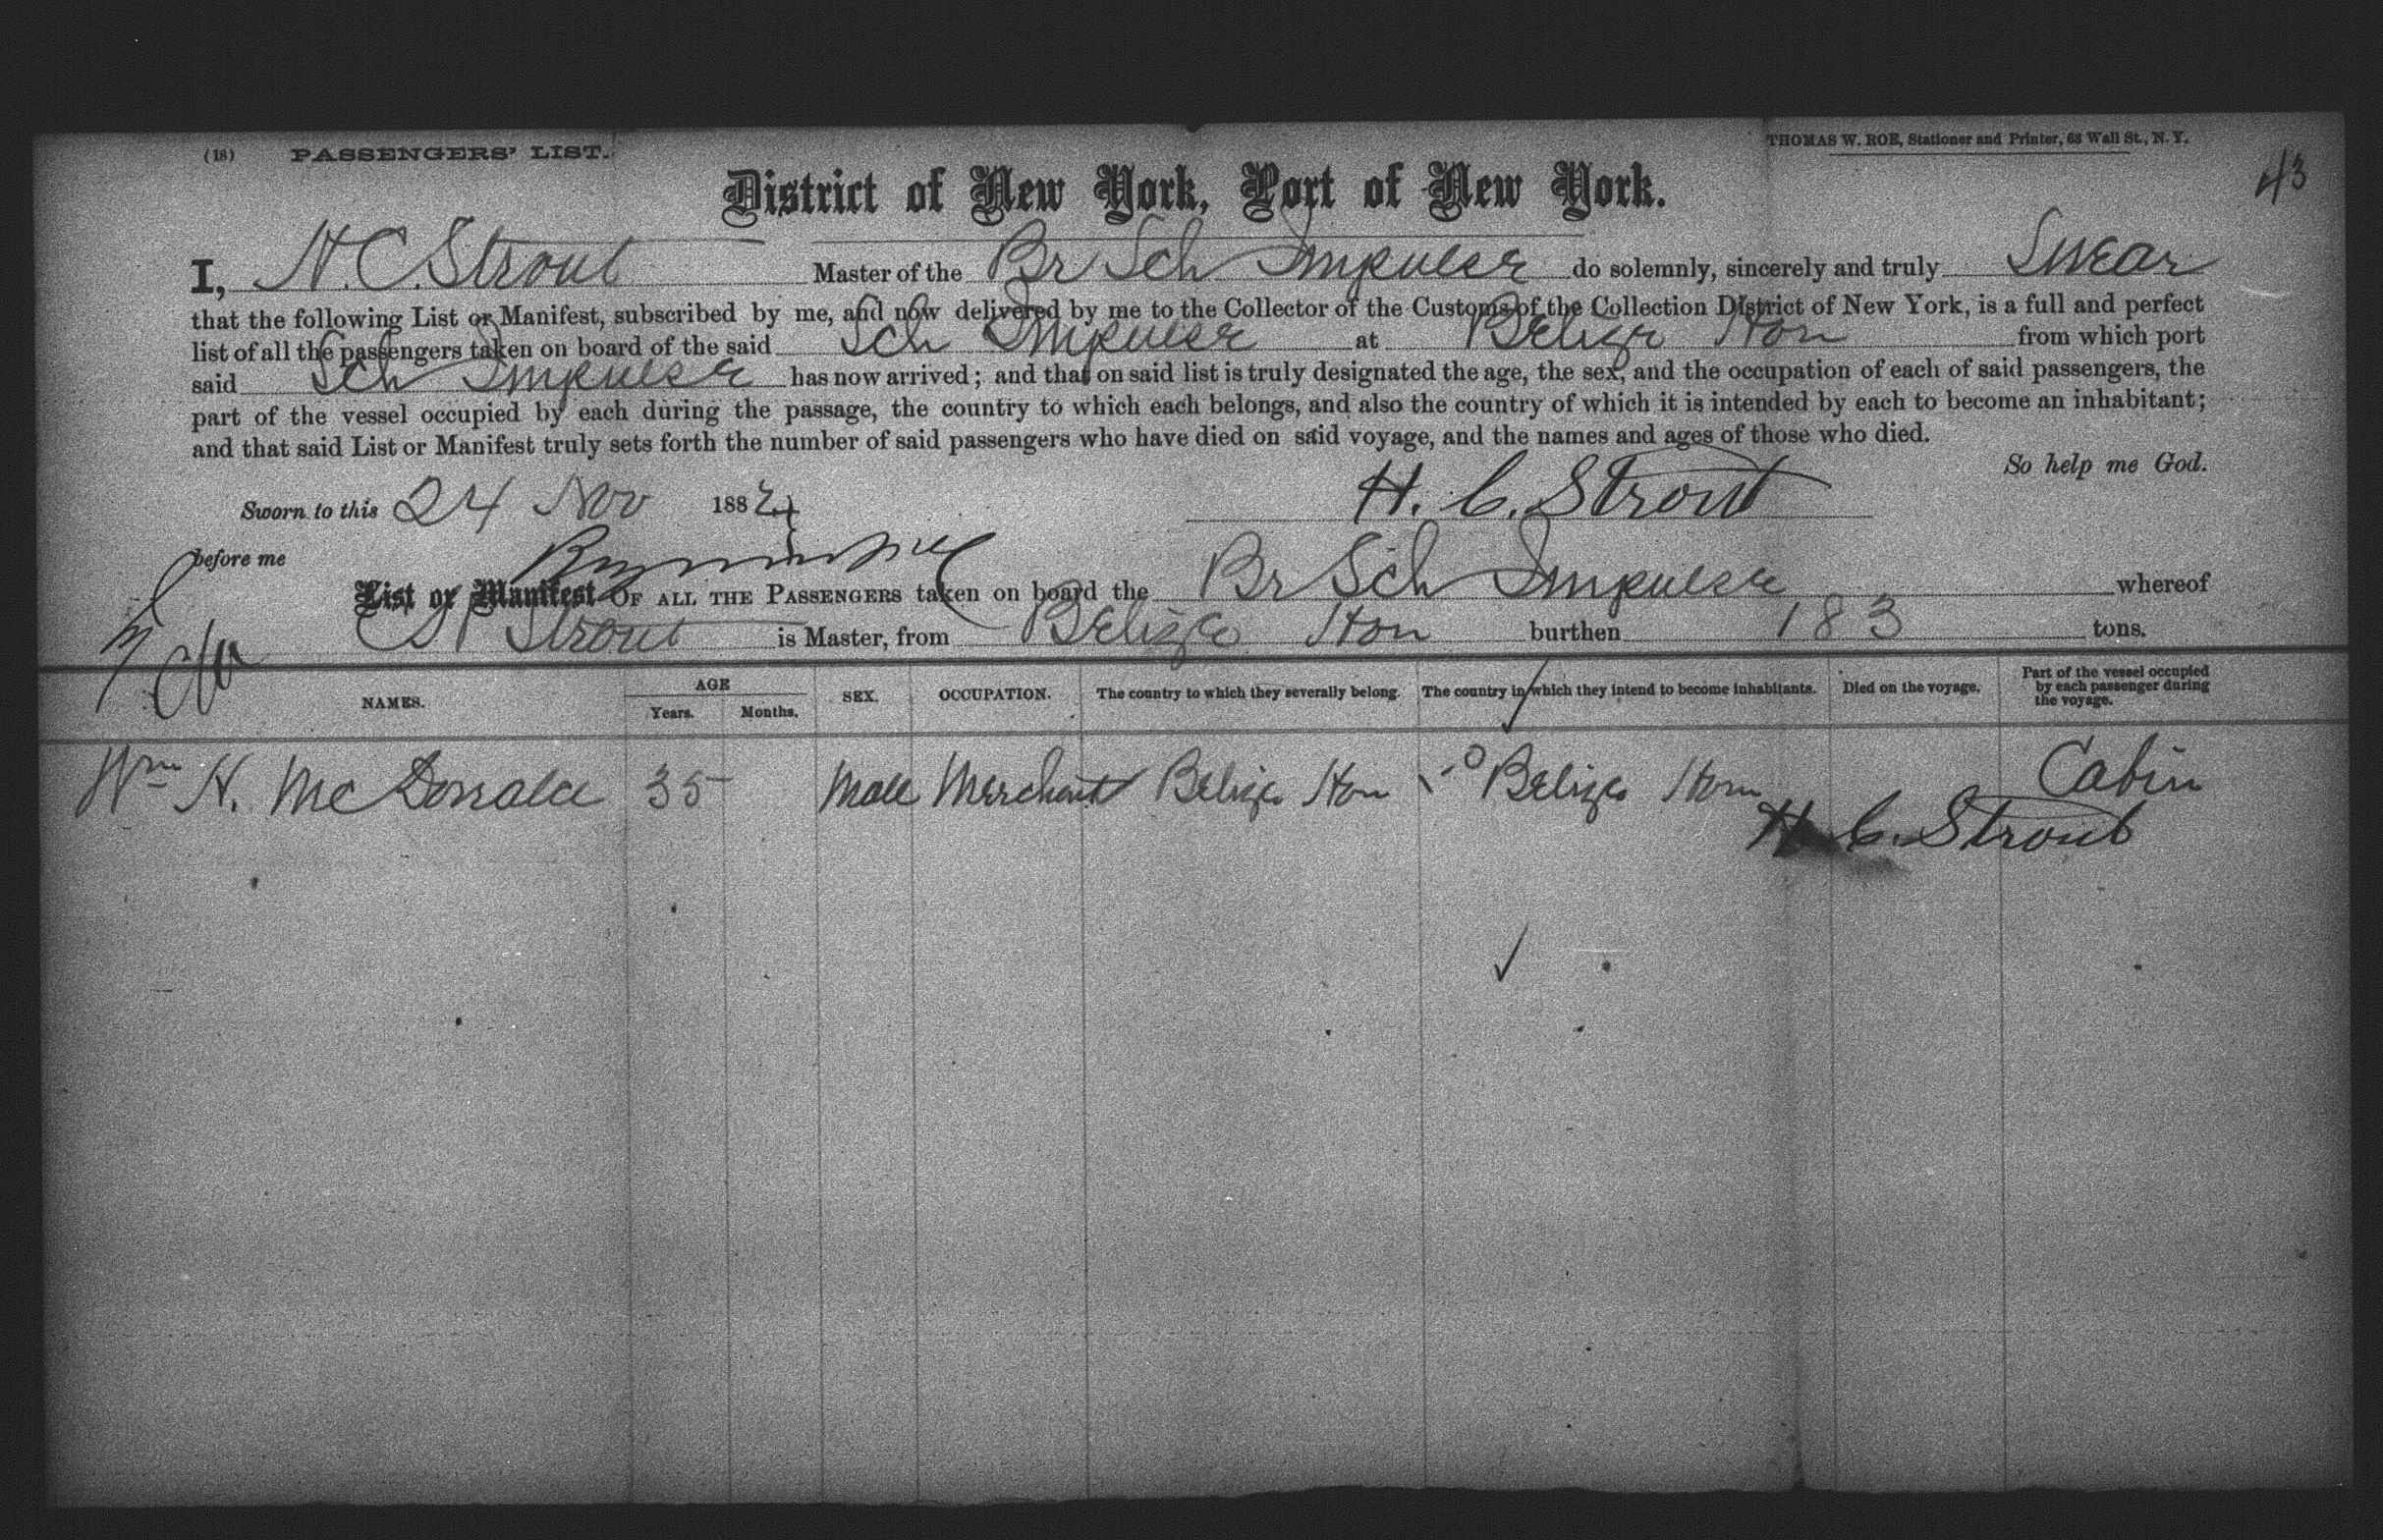 (18) PASSENGERS' LIST.
THOMAS W. ROE, Stationer and Printer, 68 Wall St., N. Y.
43
District of New York, Port of New York.
I, H. C. Strout Master of the Br Sch Impulse do solemnly, sincerely and truly Swear
that the following List or Manifest, subscribed by me, and now delivered by me to the Collector of the Customs of the Collection District of New York, is a full and perfect
list of all the passengers taken on board of the said Sch Impulse at Belize Hon from which port
said Sch Impulse has now arrived; and that on said list is truly designated the age, the sex, and the occupation of each of said passengers, the
part of the vessel occupied by each during the passage, the country to which each belongs, and also the country of which it is intended by each to become an inhabitant;
and that said List or Manifest truly sets forth the number of said passengers who have died on said voyage, and the names and ages of those who died.
So help me God.
Sworn to this 24 Nov 188 H. C. Strout
before me
List or Manifest OF ALL THE PASSENGERS taken on board the Br Sch Impulse whereof
Strout is Master, from Belize Hon burthen 183 tons.
NAMES. AGE Years. Months. SEX. OCCUPATION. The country to which they severally belong. The country in which they intend to become inhabitants. Died on the voyage. Part of the vessel occupied by each passenger during the voyage.
Wm H. McDonald 35 Male Merchant Belize Hon Belize Hon Cabin
H. C. Strout